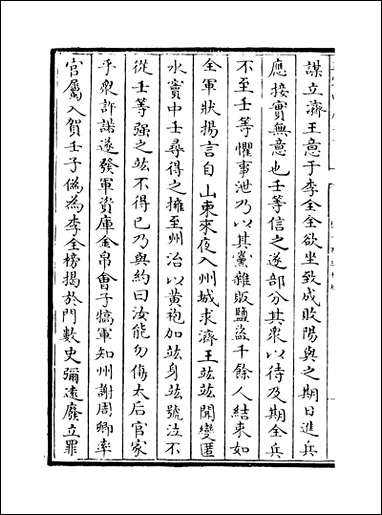 謀立濟王意于李全全欲坐致成敗陽與之期日進兵
應接實無意也壬等信之遂部分其衆以待及期全兵
不至壬等懼事泄乃以其黨雜販鹽盜千餘人結束如
全軍狀揚言自山東來夜入州城求濟王竑竑聞變匿
水竇中壬尋得之擁至州治以黄袍加竑身竑號泣不
從壬等强之竑不得已乃與約曰汝能勿傷太后官家
乎衆許諾遂發軍資庫金帛會子犒軍知州謝周卿率
官屬入賀壬子偽為李全榜揭於門數史彌逺廢立罪